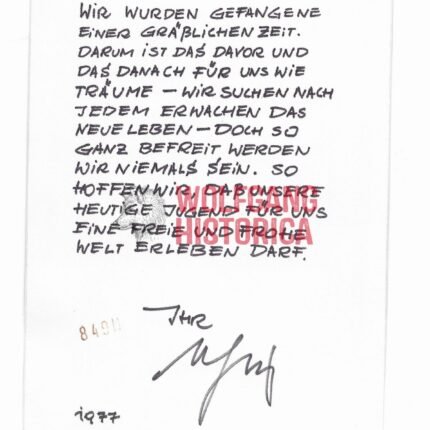 WIR WURDEN GEFANGENE
EINER GRÄßLICHEN ZEIT.
DARUM IST DAS DAVOR UND
DAS DANACH FÜR UNS WIE
TRÄUME – WIR SUCHEN NACH
JEDEM ERWACHEN DAS
NEUE LEBEN – DOCH SO
GANZ BEFREIT WERDEN
WIR NIEMALS SEIN. SO
HOFFEN WIR, DAß UNSERE
HEUTIGE JUGEND FÜR UNS
EINE FREIE UND FROHE
WELT ERLEBEN DARF.
WOLFGANG
HISTORICA
IHR
1977